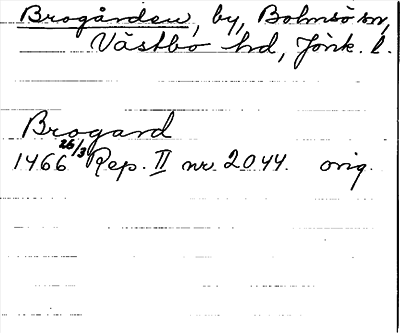 Brogården, by, Bolmsö sn,
Västbo hd, Jönk. l.
Brogard
1466 26/3 Rep. II nr. 2044. orig.